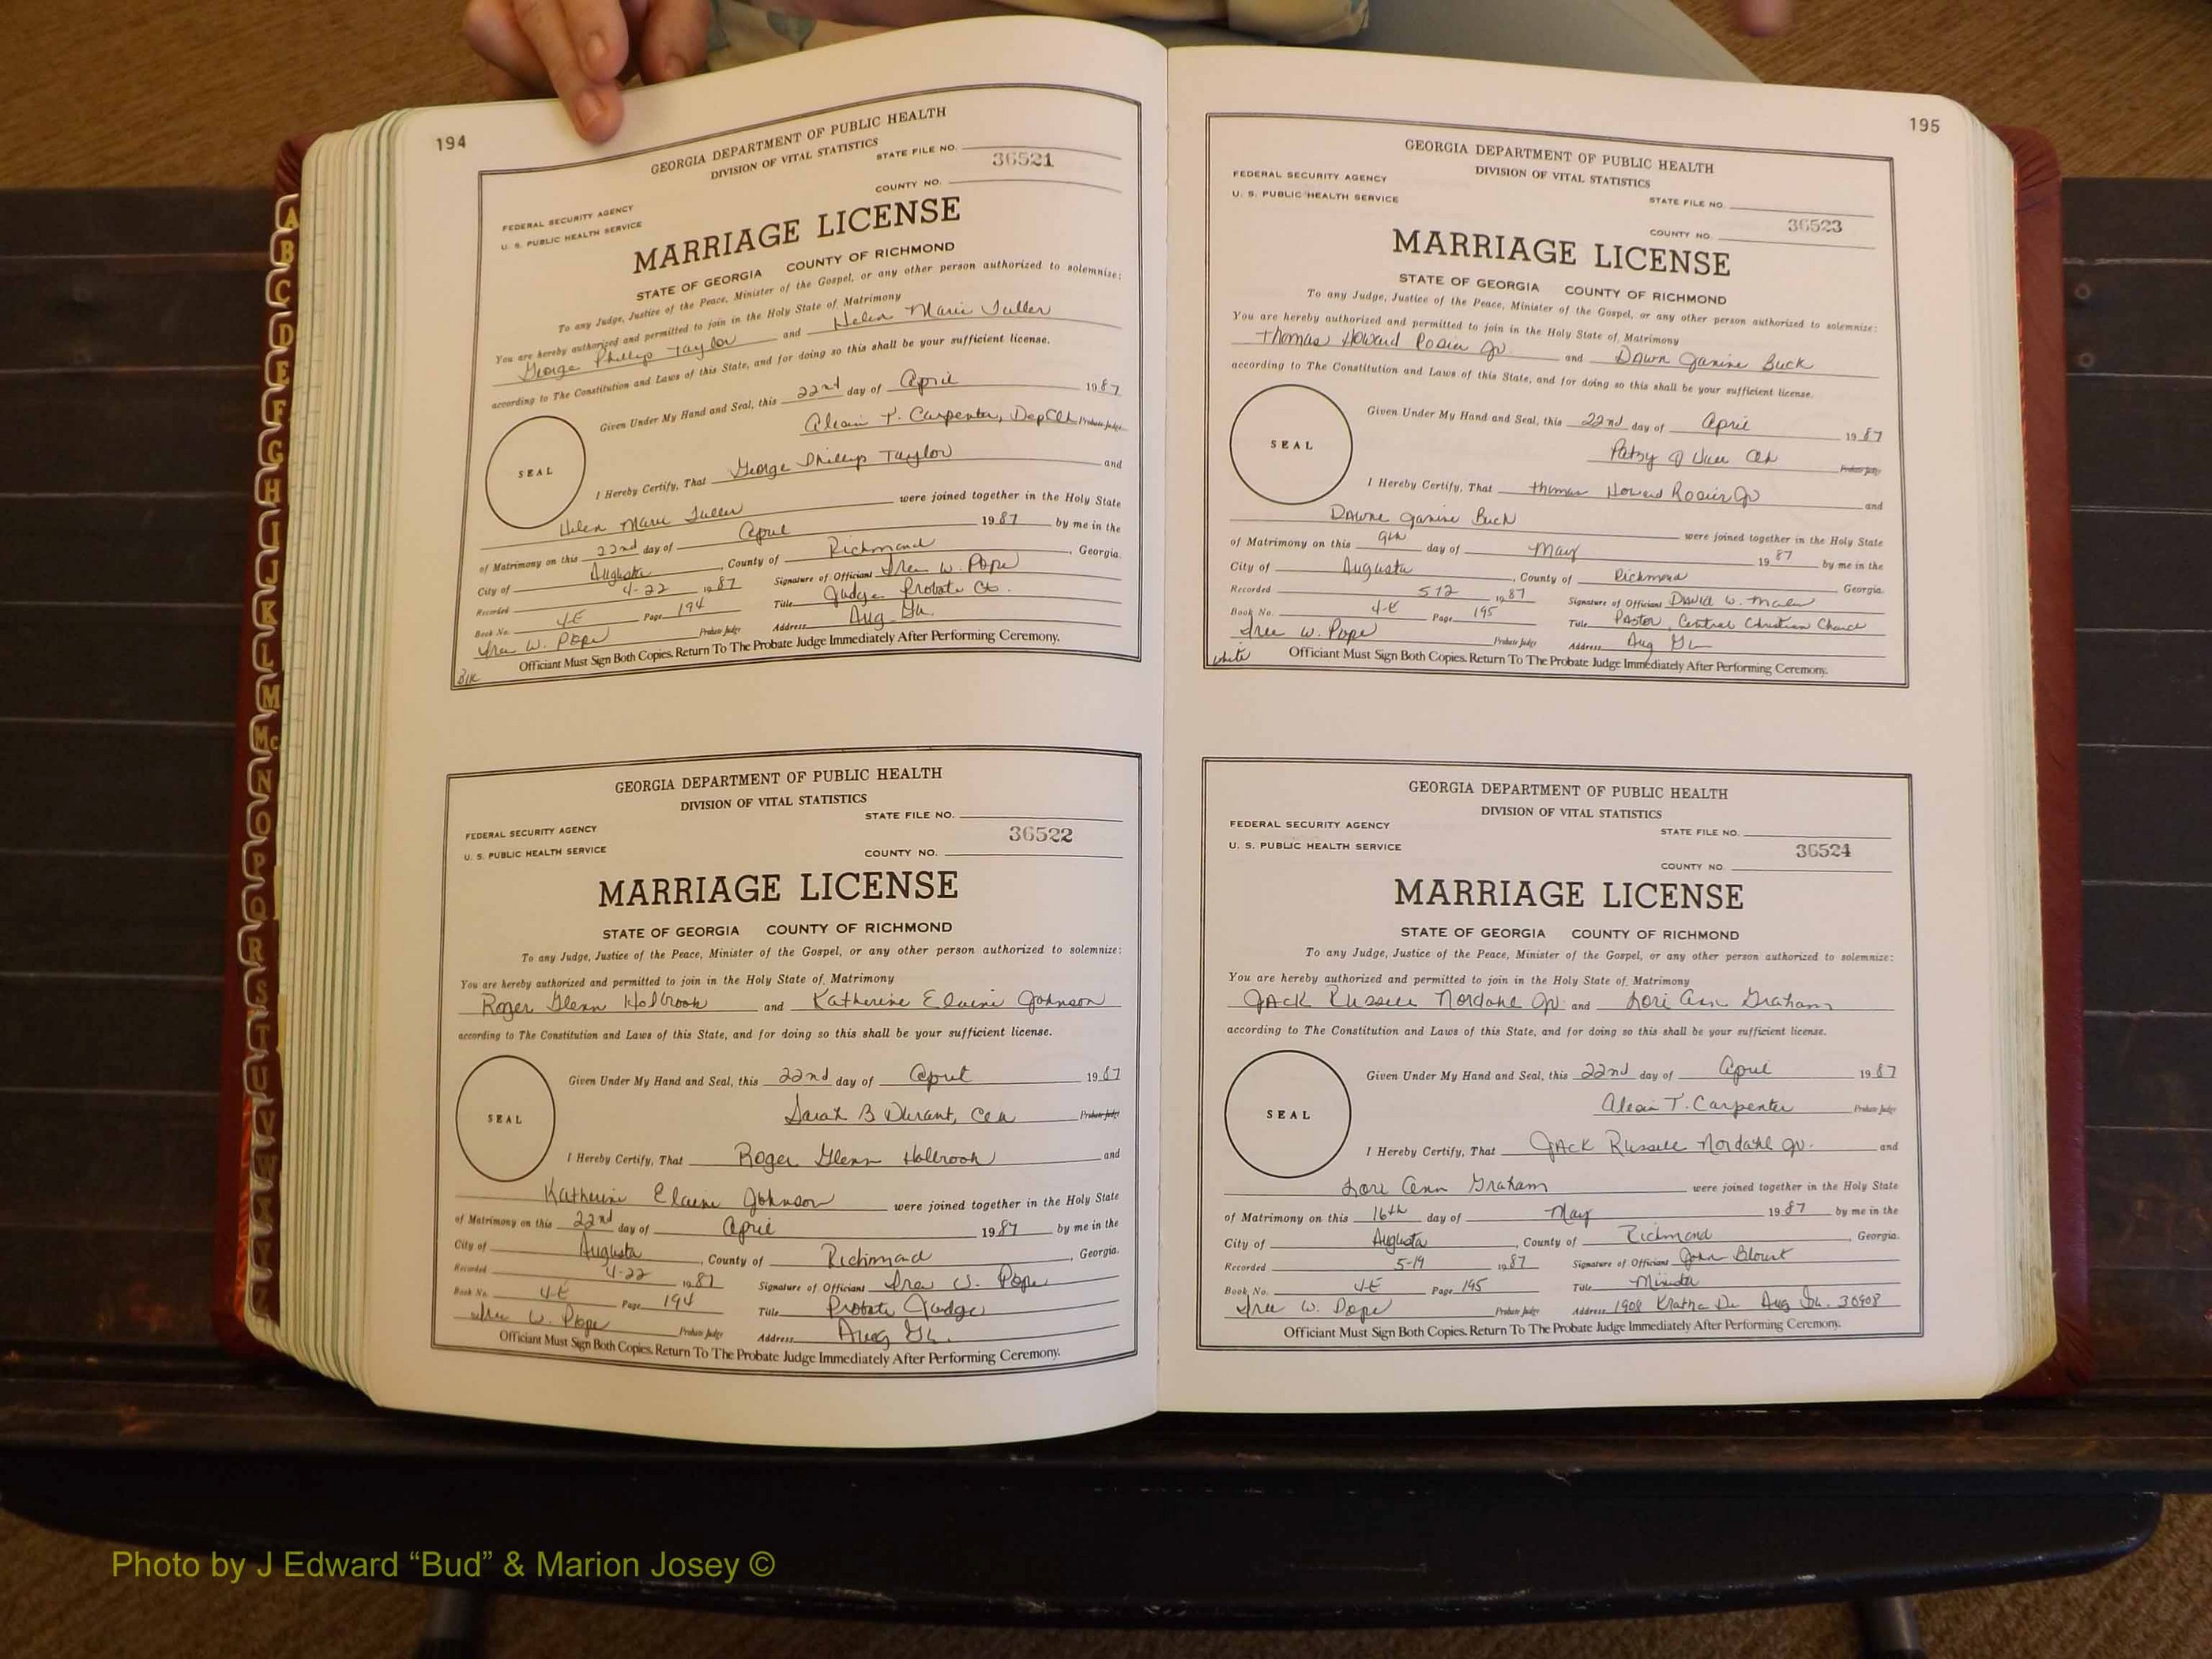 194
GEORGIA DEPARTMENT OF PUBLIC HEALTH
DIVISION OF VITAL STATISTICS
STATE FILE NO.
36521
COUNTY NO.
FEDERAL SECURITY AGENCY
U. S. PUBLIC HEALTH SERVICE
MARRIAGE LICENSE
STATE OF GEORGIA COUNTY OF RICHMOND
To any Judge, Justice of the Peace, Minister of the Gospel, or any other person authorized to solemnize:
You are hereby authorized and permitted to join in the Holy State of Matrimony
George Phillip Taylor and Helen Marie Fuller
according to The Constitution and Laws of this State, and for doing so this shall be your sufficient license.
Given Under My Hand and Seal, this 22nd day of April 1987
T. Carpenter, Dep Clk Probate Judge
SEAL
I Hereby Certify, That George Phillip Taylor and
Helen Marie Fuller were joined together in the Holy State
of Matrimony on this 22nd day of April 1987 by me in the
City of Augusta, County of Richmond, Georgia.
Recorded 4-22 1987 Signature of Officiant W. Pope
Book No. 4-E Page 194 Title Judge Probate Ct.
W. Pope Probate Judge Address Aug Ga.
Officiant Must Sign Both Copies. Return To The Probate Judge Immediately After Performing Ceremony.
Blk
GEORGIA DEPARTMENT OF PUBLIC HEALTH
DIVISION OF VITAL STATISTICS
STATE FILE NO.
FEDERAL SECURITY AGENCY
36522
U. S. PUBLIC HEALTH SERVICE
COUNTY NO.
MARRIAGE LICENSE
STATE OF GEORGIA COUNTY OF RICHMOND
To any Judge, Justice of the Peace, Minister of the Gospel, or any other person authorized to solemnize:
You are hereby authorized and permitted to join in the Holy State of Matrimony
Roger Glenn Holbrook and Katherine Elaine Johnson
according to The Constitution and Laws of this State, and for doing so this shall be your sufficient license.
Given Under My Hand and Seal, this 22nd day of April 1987
Sarah B Durant, Clk Probate Judge
SEAL
I Hereby Certify, That Roger Glenn Holbrook and
Katherine Elaine Johnson were joined together in the Holy State
of Matrimony on this 22nd day of April 1987 by me in the
City of Augusta, County of Richmond, Georgia.
Recorded 4-22 1987 Signature of Officiant Pope
Book No. 4-E Page 194 Title Probate Judge
W. Pope Probate Judge Address Aug Ga.
Officiant Must Sign Both Copies. Return To The Probate Judge Immediately After Performing Ceremony.
195
GEORGIA DEPARTMENT OF PUBLIC HEALTH
DIVISION OF VITAL STATISTICS
FEDERAL SECURITY AGENCY
U. S. PUBLIC HEALTH SERVICE
STATE FILE NO.
36523
COUNTY NO.
MARRIAGE LICENSE
STATE OF GEORGIA COUNTY OF RICHMOND
To any Judge, Justice of the Peace, Minister of the Gospel, or any other person authorized to solemnize:
You are hereby authorized and permitted to join in the Holy State of Matrimony
Thomas Howard Rosier Jr. and Dawn Janine Buck
according to The Constitution and Laws of this State, and for doing so this shall be your sufficient license.
Given Under My Hand and Seal, this 22nd day of April 1987
Patsy Clk Probate Judge
SEAL
I Hereby Certify, That Thomas Howard Rosier Jr and
Dawne Janine Buck were joined together in the Holy State
of Matrimony on this 9th day of May 1987 by me in the
City of Augusta, County of Richmond Georgia.
Recorded 5-12 1987 Signature of Officiant David W.
Book No. 4-E Page 195 Title Pastor, Central Christian Church
W. Pope Probate Judge Address Aug Ga
white
Officiant Must Sign Both Copies. Return To The Probate Judge Immediately After Performing Ceremony.
GEORGIA DEPARTMENT OF PUBLIC HEALTH
DIVISION OF VITAL STATISTICS
FEDERAL SECURITY AGENCY
STATE FILE NO.
U. S. PUBLIC HEALTH SERVICE
36524
COUNTY NO.
MARRIAGE LICENSE
STATE OF GEORGIA COUNTY OF RICHMOND
To any Judge, Justice of the Peace, Minister of the Gospel, or any other person authorized to solemnize:
You are hereby authorized and permitted to join in the Holy State of Matrimony
Jack Russell Nordahl Jr. and Lori Ann Graham
according to The Constitution and Laws of this State, and for doing so this shall be your sufficient license.
Given Under My Hand and Seal, this 22nd day of April 1987
T. Carpenter Probate Judge
SEAL
I Hereby Certify, That Jack Russell Nordahl Jr. and
Lori Ann Graham were joined together in the Holy State
of Matrimony on this 16th day of May 1987 by me in the
City of Augusta, County of Richmond, Georgia.
Recorded 5-19 1987 Signature of Officiant John Blount
Book No. 4-E Page 195 Title Minister
W. Pope Probate Judge Address 1908 Dr Aug Ga. 30908
Officiant Must Sign Both Copies. Return To The Probate Judge Immediately After Performing Ceremony.
A
B
C
D
E
F
G
H
I
J
K
L
M
Mc
N
O
P
Q
R
S
T
U
V
W
Photo by J Edward “Bud” & Marion Josey ©